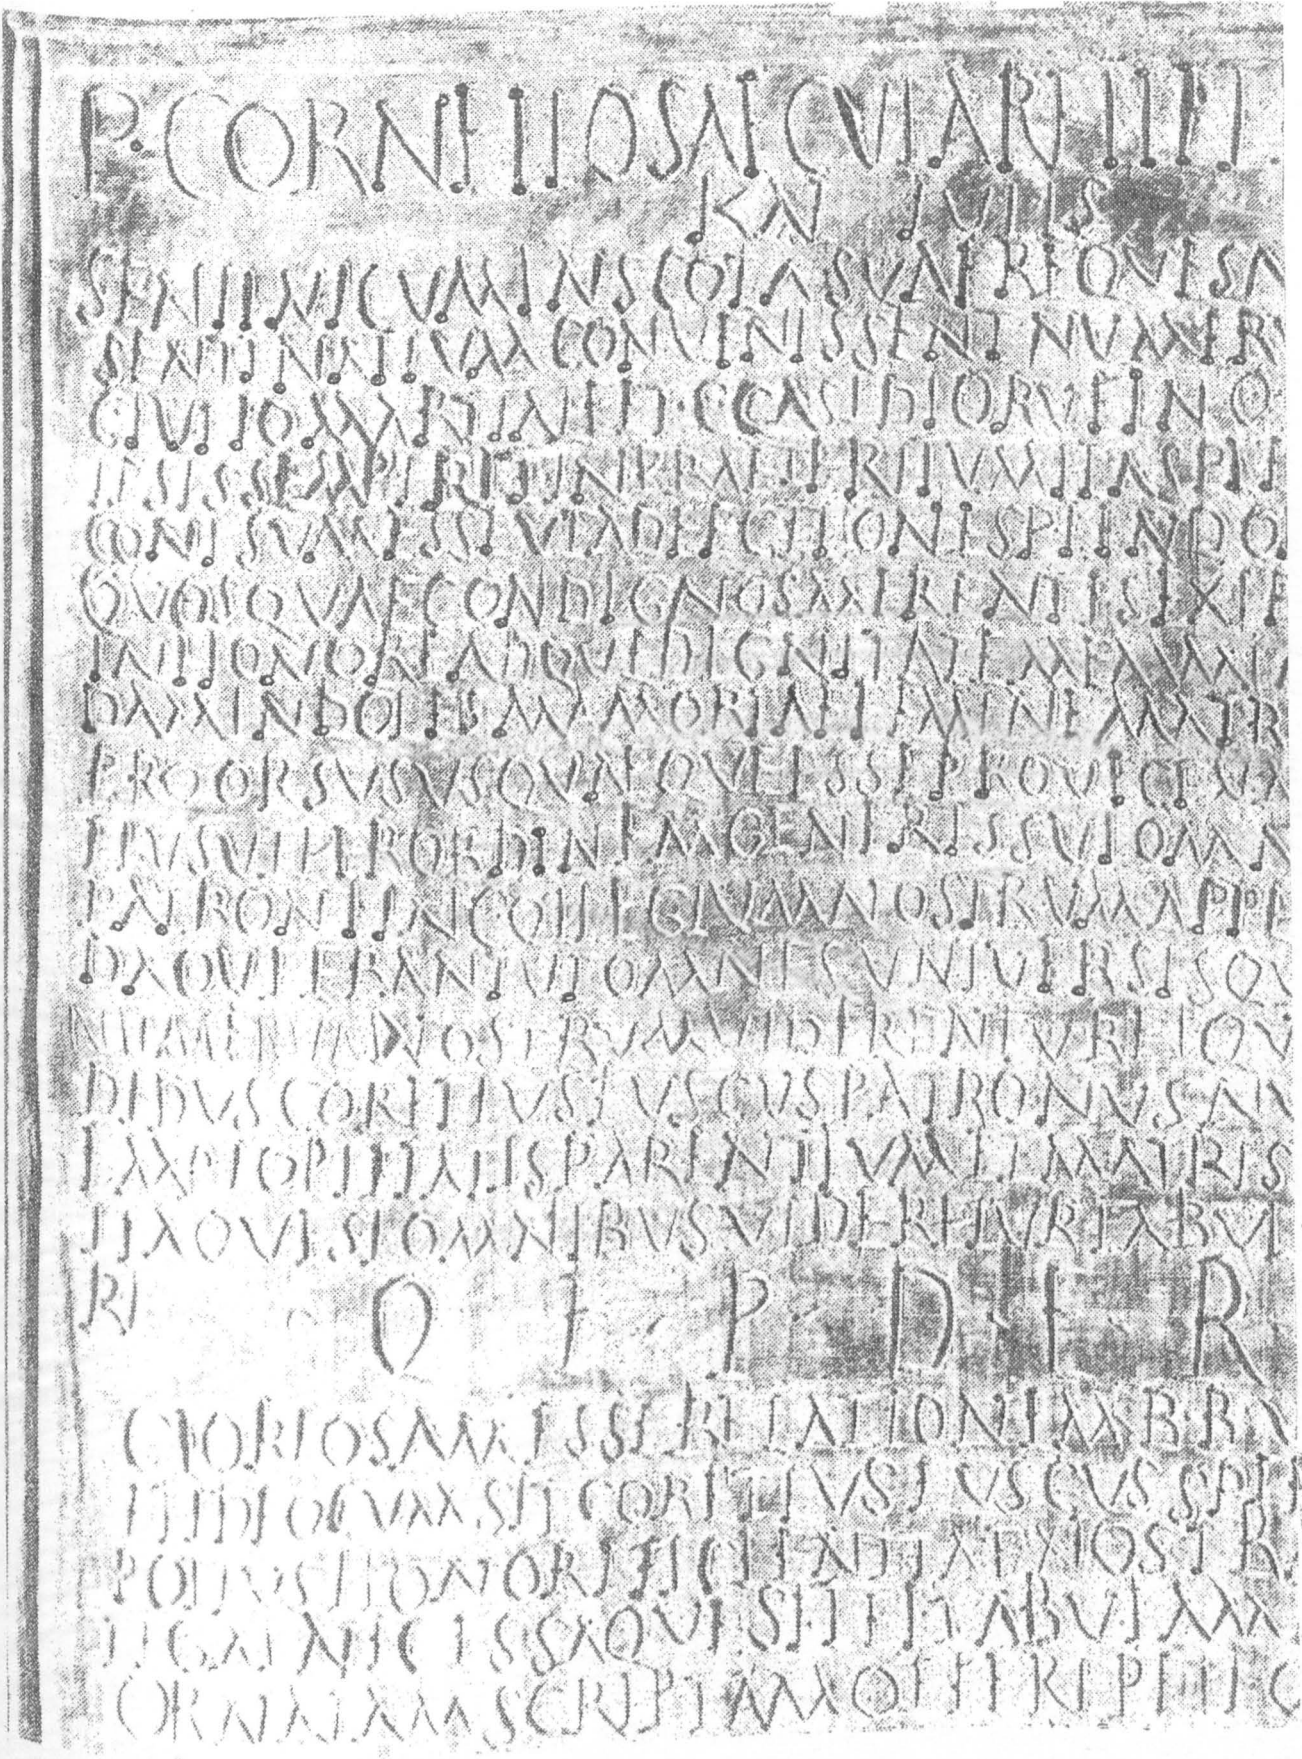 P·CORNELIO SAECVLARE II ET
KAL IVLIS
SENTINI CVM IN SCOLA SVA FREQVES N
SENTINATIVM CONVENISSENT NVMERV
G IVLIO MARTIALE ET G CASIDIO RVFINO Q
SEMPER ET IN PRAETERITVM ITA SPLE
SVAM ESSE VT ADFECTIONE SPLENDO
QVOSQVAE CONDIGNOS MERENTES EXTE
TALI HONORE ADQVE DIGNITATE MEMMIA
DAM INDOLIS MAMORIAE FEMINEAM TR
PROORSVS VSQVAEQVE ESSE
EIVS VT PER ORDINEM GENERIS SVI OMN
PATRON IN COLLEGIVM NOSTRVM APPE
DAQVE ERANT VT OMNES VNIVERSISQV
NVMERVM NOSTRVM VIDERENTVR ELOQV
DEDVS CORETIVS FVSCVS PATRONVS AM
EXEMPLO PIETATIS PARENTIVM ET MATRIS
ITAQVE SI OMNIBVS VIDERETVR TABVL
RI Q F P D E R
GLORIOSAM ESSE RELATIONEM B B V
ET IDEO CVM SIT CORETIVS FVSCVS SPLE
POTIVS HONORIFICENTIA
SIT EI TABVLAM
ORNATAM SCRIPTAM OFFERRE